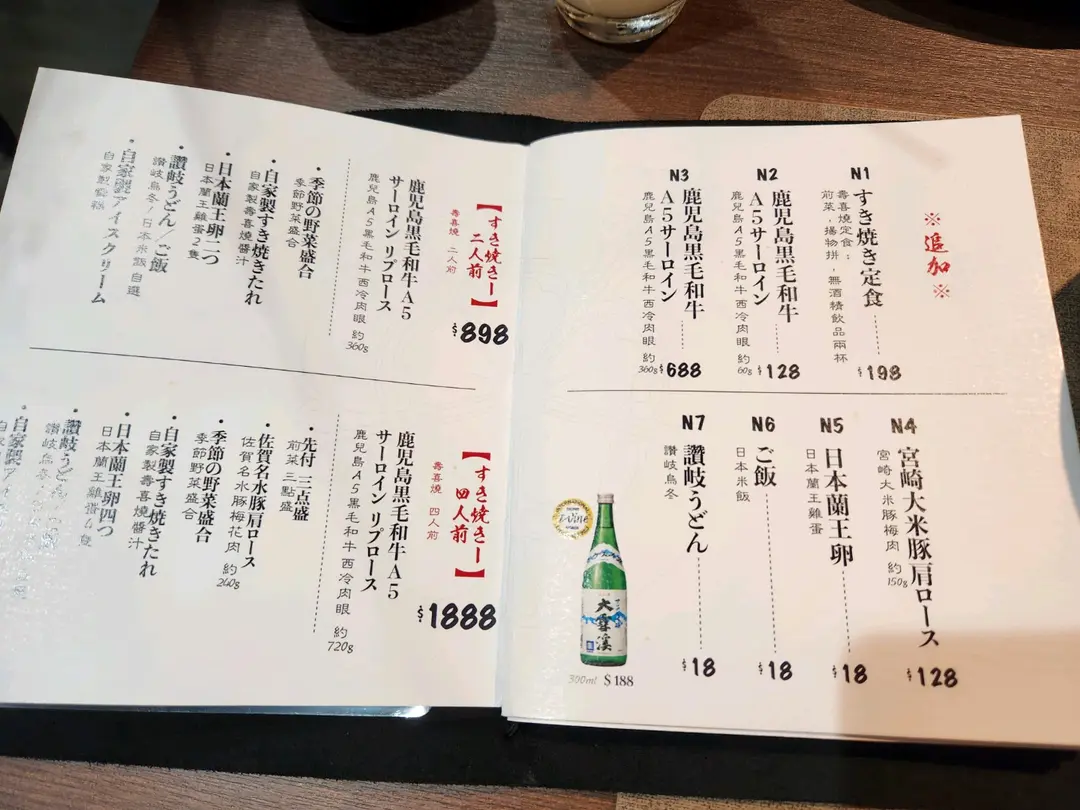 ※追加※
N1
すき焼き定食
壽喜燒定食:
前菜﹐揚物拼﹐無酒精飲品兩杯
$198
N2
鹿児島黒毛和牛
A5サーロイン
鹿兒島A5黑毛和牛西冷肉眼 約60g
$128
N3
鹿児島黒毛和牛
A5サーロイン
鹿兒島A5黑毛和牛西冷肉眼 約360g
$688
N4
宮崎大米豚肩ロース
宮崎大米豚梅肉 約150g
$128
N5
日本蘭王卵
日本蘭王雞蛋
$18
N6
ご飯
日本米飯
$18
N7
讃岐うどん
讚岐烏冬
$18
iWine
大雪渓
300ml $188
【すき焼きー二人前】
壽喜燒 二人前
$898
鹿児島黒毛和牛A5
サーロイン リブロース
鹿兒島A5黑毛和牛西冷肉眼 約360g
・季節の野菜盛合
季節野菜盛合
・自家製すき焼きたれ
自家製壽喜燒醬汁
・日本蘭王卵二つ
日本蘭王雞蛋2隻
・讃岐うどん/ご飯
讚岐烏冬/日本米飯自選
・自家製アイスクリーム
自家製雪糕
【すき焼きー四人前】
壽喜燒 四人前
$1888
鹿児島黒毛和牛A5
サーロイン リブロース
鹿兒島A5黑毛和牛西冷肉眼 約720g
・先付 三点盛
前菜三點盛
・佐賀名水豚肩ロース
佐賀名水豚梅花肉 約240g
・季節の野菜盛合
季節野菜盛合
・自家製すき焼きたれ
自家製壽喜燒醬汁
・日本蘭王卵四つ
日本蘭王雞蛋4隻
・讃岐うどん
讚岐烏冬
・自家製